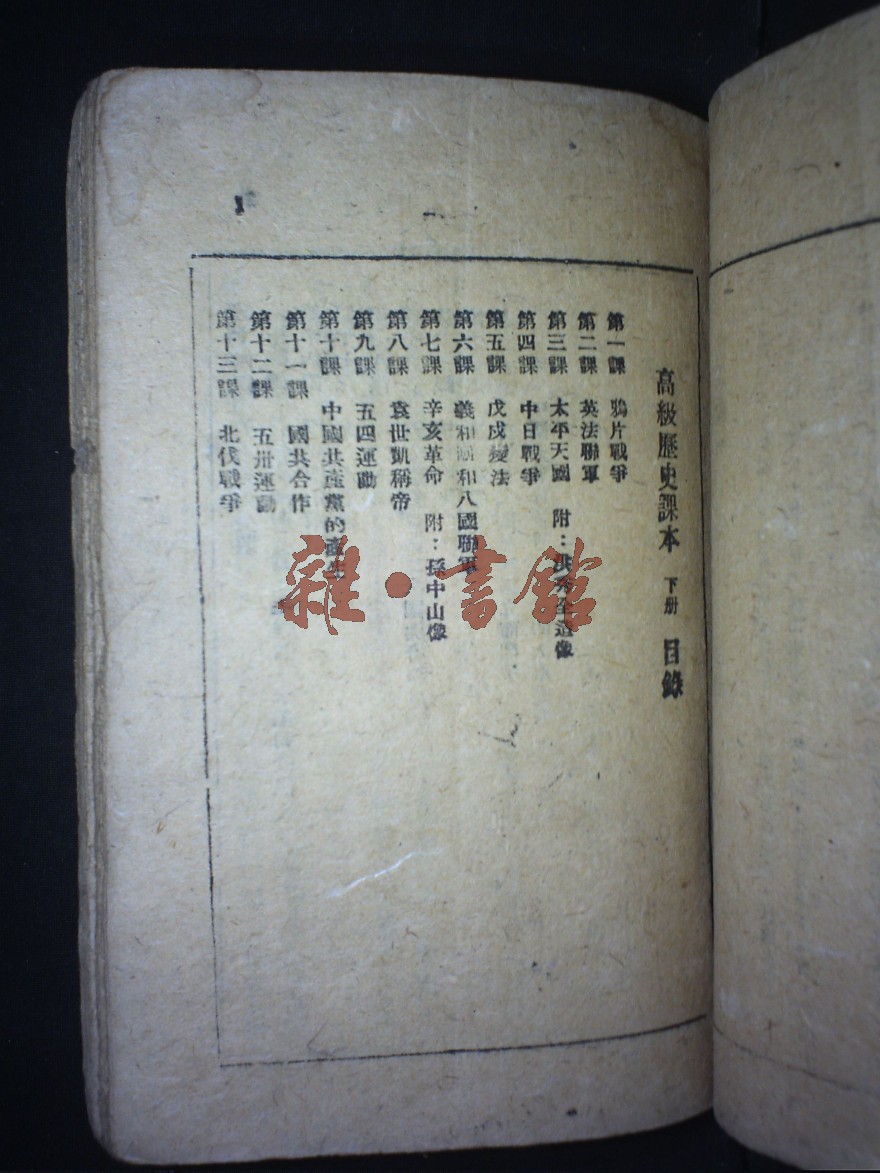 高級歷史課本 下册 目錄
第一課 鴉片戰爭
第二課 英法聯軍
第三課 太平天國 附：洪秀全遺像
第四課 中日戰爭
第五課 戊戌變法
第六課 義和團和八國聯軍
第七課 辛亥革命 附：孫中山像
第八課 袁世凱稱帝
第九課 五四運動
第十課 中國共產黨的產生
第十一課 國共合作
第十二課 五卅運動
第十三課 北伐戰爭
雜·書館